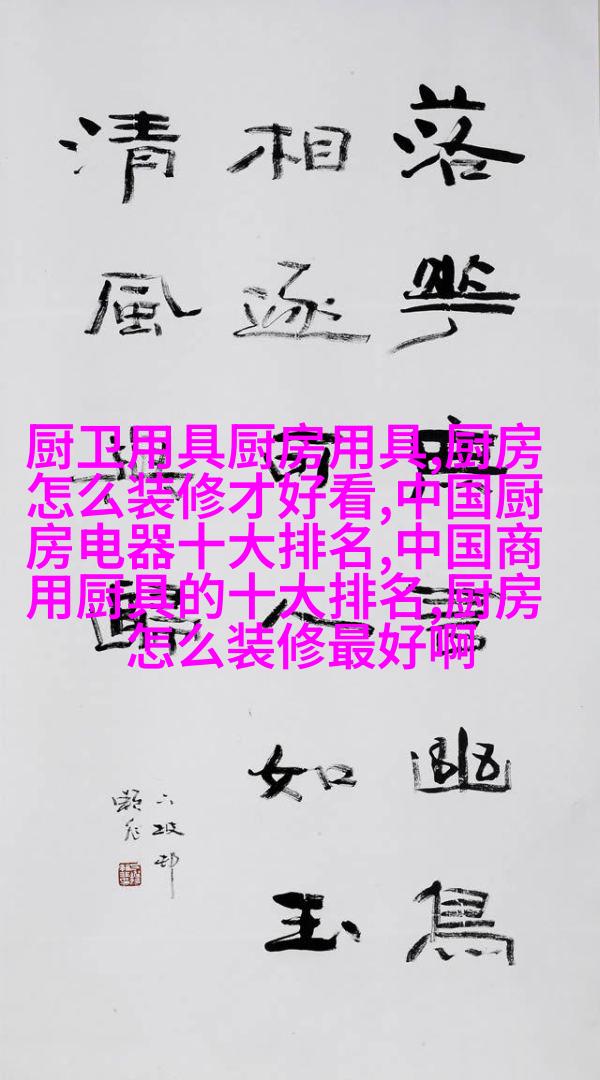 落華無言幽鳥
相逐可人如玉
清風與歸
厨卫用具厨房用具,厨房
怎么装修才好看,中国厨
房电器十大排名,中国商
用厨具的十大排名,厨房
怎么装修最好啊